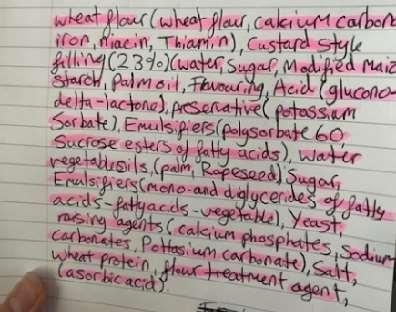 wheat flour (wheat flour, calcium carbon
iron, niacin, Thiamin), Custard style
filling (23%) (water, Sugar, Modified Maiz
starch, Palm oil, Flavouring, Acid (glucono-
delta-lactone), preservative (potassium
Sorbate), Emulsifiers (polysorbate 60,
Sucrose esters of fatty acids), water
vegetable oils, (palm, Rapeseed) Sugar,
Emulsifiers (mono-and diglycerides of fatty
acids-fattyacids-vegetable), Yeast,
raising agents (calcium phosphates, Sodium
carbonates, Pottasium carbonate), Salt,
wheat protein, flour treatment agent,
(asorbic acid).